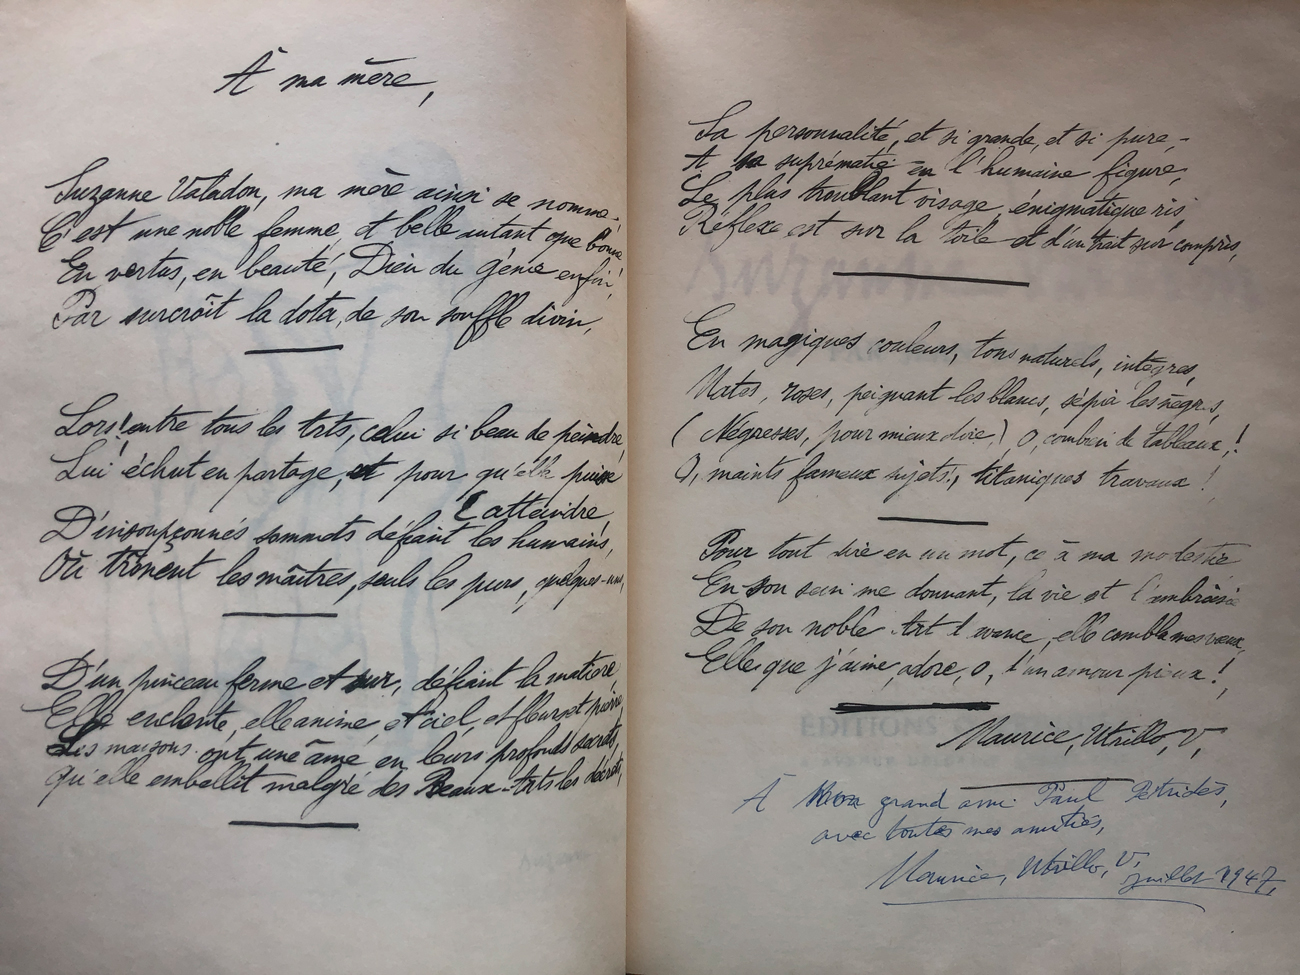 À ma mère,
Suzanne Valadon, ma mère ainsi se nomme,
C'est une noble femme, et belle autant que bonne
En vertus, en beauté, Dieu du génie enfin!
Par surcroît la dota, de son souffle divin,
Lors! entre tous les Arts, celui si beau de peindre,
Lui échut en partage, et pour qu'elle puisse
(atteindre,
D'insoupçonnés sommets défiant les humains,
Où trônent les maîtres, seuls les purs, quelques-uns,
D'un pinceau ferme et sur, défiant la matière,
Elle enchante, elle anime, et ciel, et fleurs et pierre,
Les maisons ont une âme en leurs profonds secrets,
Qu'elle embellit malgré des Beaux-Arts les décrets,
Sa personnalité, et si grande, et si pure,
A sa suprématie en l'humaine figure,
Le plus troublant visage, énigmatique ris,
Réflexe est sur la toile et d'un trait sur compris,
En magiques couleurs, tons naturels, intègres,
Mates, roses, peignant les blancs, sépia les nègres,
(Négresses, pour mieux dire!) O, combien de tableaux,!
O, maints fameux sujets!, titaniques travaux!
Pour tout dire en un mot, ce à ma modestie
En son sein me donnant, la vie et l'ambroisie
De son noble Art l'avance, elle combla mes vœux,
Elle que j'aime, adore, O, d'un amour pieux!,
Maurice, Utrillo, V,
À mon grand ami Paul Pétridès,
avec toutes mes amitiés,
Maurice, Utrillo, V,
Juillet 1947,
ÉDITIONS